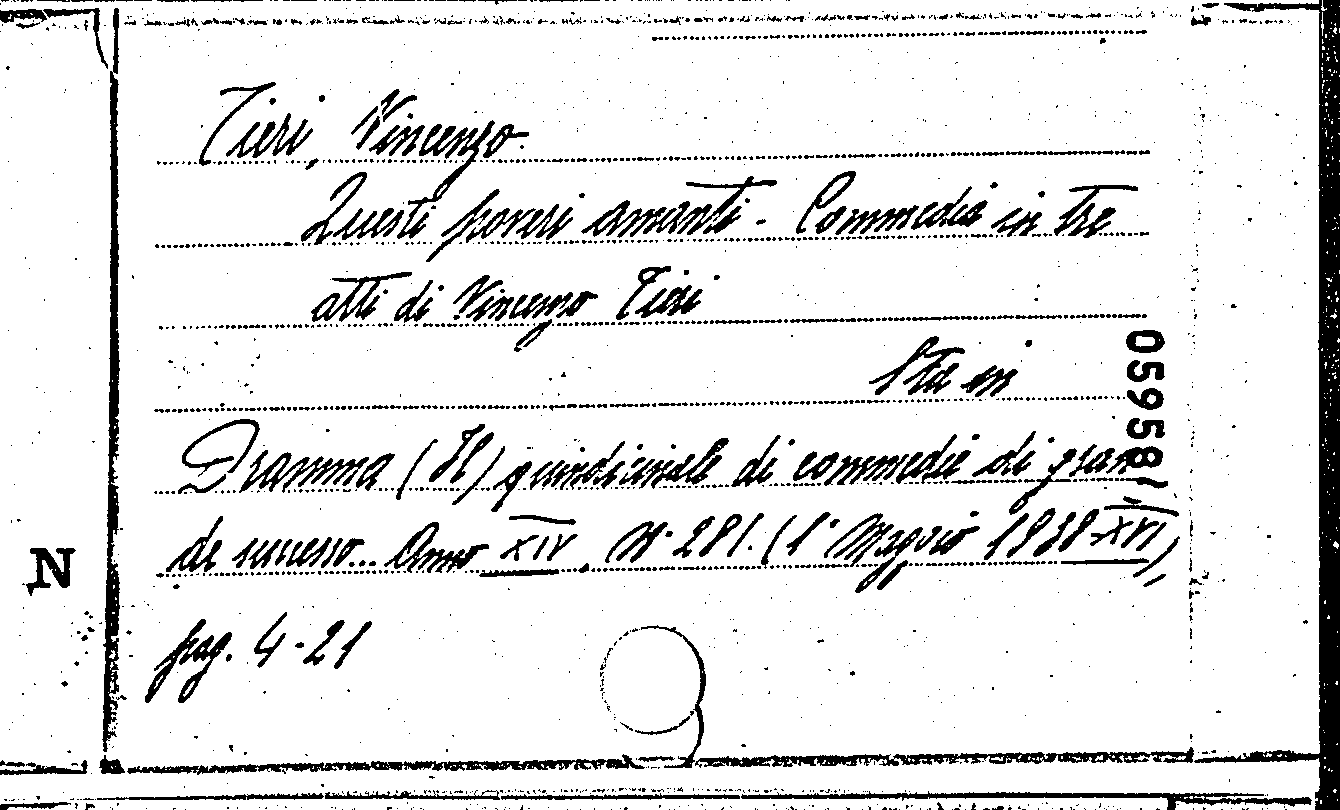 Tieri, Vincenzo.
Questi poveri amanti. Commedia in tre
atti di Vincenzo Tieri
Sta in
Dramma (Il) quindicinale di commedie di gran
de successo... Anno XIV, N. 281. (1° Maggio 1938-XVI),
pag. 4-21
N
059581